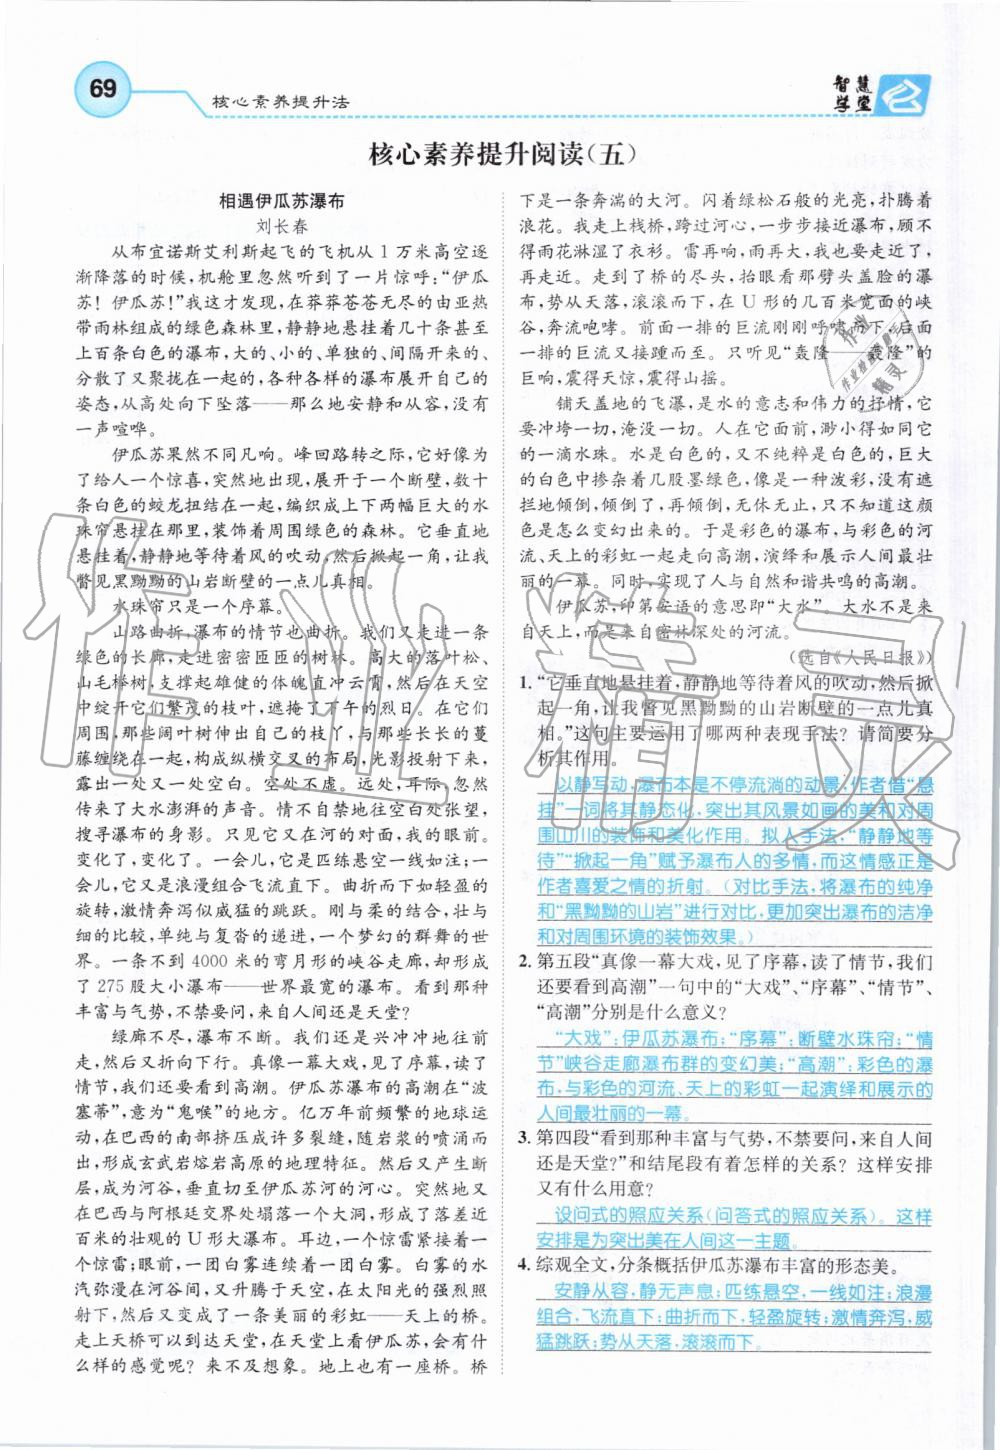 69
核心素养提升法
智慧学堂
核心素养提升阅读(五)
相遇伊瓜苏瀑布
刘长春
从布宜诺斯艾利斯起飞的飞机从1万米高空逐
渐降落的时候,机舱里忽然听到了一片惊呼:“伊瓜
苏!伊瓜苏!”我这才发现,在莽莽苍苍无尽的由亚热
带雨林组成的绿色森林里,静静地悬挂着几十条甚至
上百条白色的瀑布,大的、小的、单独的、间隔开来的、
分散了又聚拢在一起的,各种各样的瀑布展开自己的
姿态,从高处向下坠落——那么地安静和从容,没有
一声喧哗。
伊瓜苏果然不同凡响。峰回路转之际,它好像为
了给人一个惊喜,突然地出现,展开于一个断壁,数十
条白色的蛟龙扭结在一起,编织成上下两幅巨大的水
珠帘悬挂在那里,装饰着周围绿色的森林。它垂直地
悬挂着,静静地等待着风的吹动,然后掀起一角,让我
瞥见黑黝黝的山岩断壁的一点儿真相。
水珠帘只是一个序幕。
山路曲折,瀑布的情节也曲折。我们又走进一条
绿色的长廊,走进密密匝匝的树林。高大的落叶松、
山毛榉树,支撑起雄健的体魄直冲云霄,然后在天空
中绽开它们繁茂的枝叶,遮掩了下午的烈日。在它们
周围,那些阔叶树伸出自己的枝丫,与那些长长的蔓
藤缠绕在一起,构成纵横交叉的布局,光影投射下来,
露出一处又一处空白。空处不虚。远处,耳际,忽然
传来了大水澎湃的声音。情不自禁地往空白处张望,
搜寻瀑布的身影。只见它又在河的对面,我的眼前。
变化了,变化了。一会儿,它是匹练悬空一线如注;一
会儿,它又是浪漫组合飞流直下。曲折而下如轻盈的
旋转,激情奔泻似威猛的跳跃。刚与柔的结合,壮与
细的比较,单纯与复沓的递进,一个梦幻的群舞的世
界。一条不到4000米的弯月形的峡谷走廊,却形成
了275股大小瀑布——世界最宽的瀑布。看到那种
丰富与气势,不禁要问,来自人间还是天堂?
绿廊不尽,瀑布不断。我们还是兴冲冲地往前
走,然后又折向下行。真像一幕大戏,见了序幕,读了
情节,我们还要看到高潮。伊瓜苏瀑布的高潮在“波
塞蒂”,意为“鬼喉”的地方。亿万年前频繁的地球运
动,在巴西的南部挤压成许多裂缝,随岩浆的喷涌而
出,形成玄武岩熔岩高原的地理特征。然后又产生断
层,成为河谷,垂直切至伊瓜苏河的河心。突然地又
在巴西与阿根廷交界处塌落一个大洞,形成了落差近
百米的壮观的U形大瀑布。耳边,一个惊雷紧接着一
个惊雷;眼前,一团白雾连续着一团白雾。白雾的水
汽弥漫在河谷间,又升腾于天空,在太阳光的强烈照
射下,然后又变成了一条美丽的彩虹——天上的桥。
走上天桥可以到达天堂,在天堂上看伊瓜苏,会有什
么样的感觉呢?来不及想象。地上也有一座桥。桥
下是一条奔湍的大河。闪着绿松石般的光亮,扑腾着
浪花。我走上栈桥,走过河心,一步步接近瀑布,顾不
得雨花淋湿了衣衫。雷再响,雨再大,我也要走近了,
再走近。走到了桥的尽头,抬眼看那劈头盖脸的瀑
布,势从天落,滚滚而下,在U形的几百米宽面的峡
谷,奔流咆哮。前面一排的巨流刚刚呼啸而下,后面
一排的巨流又接踵而至。只听见“轰隆——轰隆”的
巨响,震得天惊,震得山摇。
铺天盖地的飞瀑,是水的意志和伟力的抒情,它
要冲垮一切,淹没一切。人在它面前,渺小得如同它
的一滴水珠。水是白色的,又不纯粹是白色的,巨大
的白色中掺杂着几股墨绿色,像是一种泼彩,没有遮
拦地倾倒,倾倒了,再倾倒,无休无止,只不知道这颜
色是怎么变幻出来的。于是彩色的瀑布,与彩色的河
流、天上的彩虹一起走向高潮,演绎和展示人间最壮
丽的一幕。同时,实现了人与自然和谐共鸣的高潮。
伊瓜苏,印第安语的意思即“大水”。大水不是来
自天上,而是来自密林深处的河流。
(选自《人民日报》)
1.“它垂直地悬挂着,静静地等待着风的吹动,然后掀
起一角,让我瞥见黑黝黝的山岩断壁的一点儿真
相。”这句主要运用了哪两种表现手法?请简要分
析其作用。
以静写动,瀑布本是不停流淌的动景,作者借“悬
挂”一词将其静态化,突出其风景如画的美和对周
围山川的装饰和美化作用。拟人手法,“静静地等
待”“掀起一角”赋予瀑布人的多情,而这情感正是
作者喜爱之情的折射。(对比手法,将瀑布的纯净
和“黑黝黝的山岩”进行对比,更加突出瀑布的洁净
和对周围环境的装饰效果。)
2.第五段“真像一幕大戏,见了序幕,读了情节,我们
还要看到高潮”一句中的“大戏”、“序幕”、“情节”、
“高潮”分别是什么意义?
“大戏”:伊瓜苏瀑布;“序幕”:断壁水珠帘;“情
节”峡谷走廊瀑布群的变幻美;“高潮”:彩色的瀑
布,与彩色的河流、天上的彩虹一起演绎和展示的
人间最壮丽的一幕。
3.第四段“看到那种丰富与气势,不禁要问,来自人间
还是天堂?”和结尾段有着怎样的关系?这样安排
又有什么用意?
设问式的照应关系(问答式的照应关系)。这样
安排是为突出美在人间这一主题。
4.综观全文,分条概括伊瓜苏瀑布丰富的形态美。
安静从容,静无声息;匹练悬空,一线如注;浪漫
组合,飞流直下;曲折而下,轻盈旋转;激情奔泻,威
猛跳跃;势从天落,滚滚而下。
作业精灵